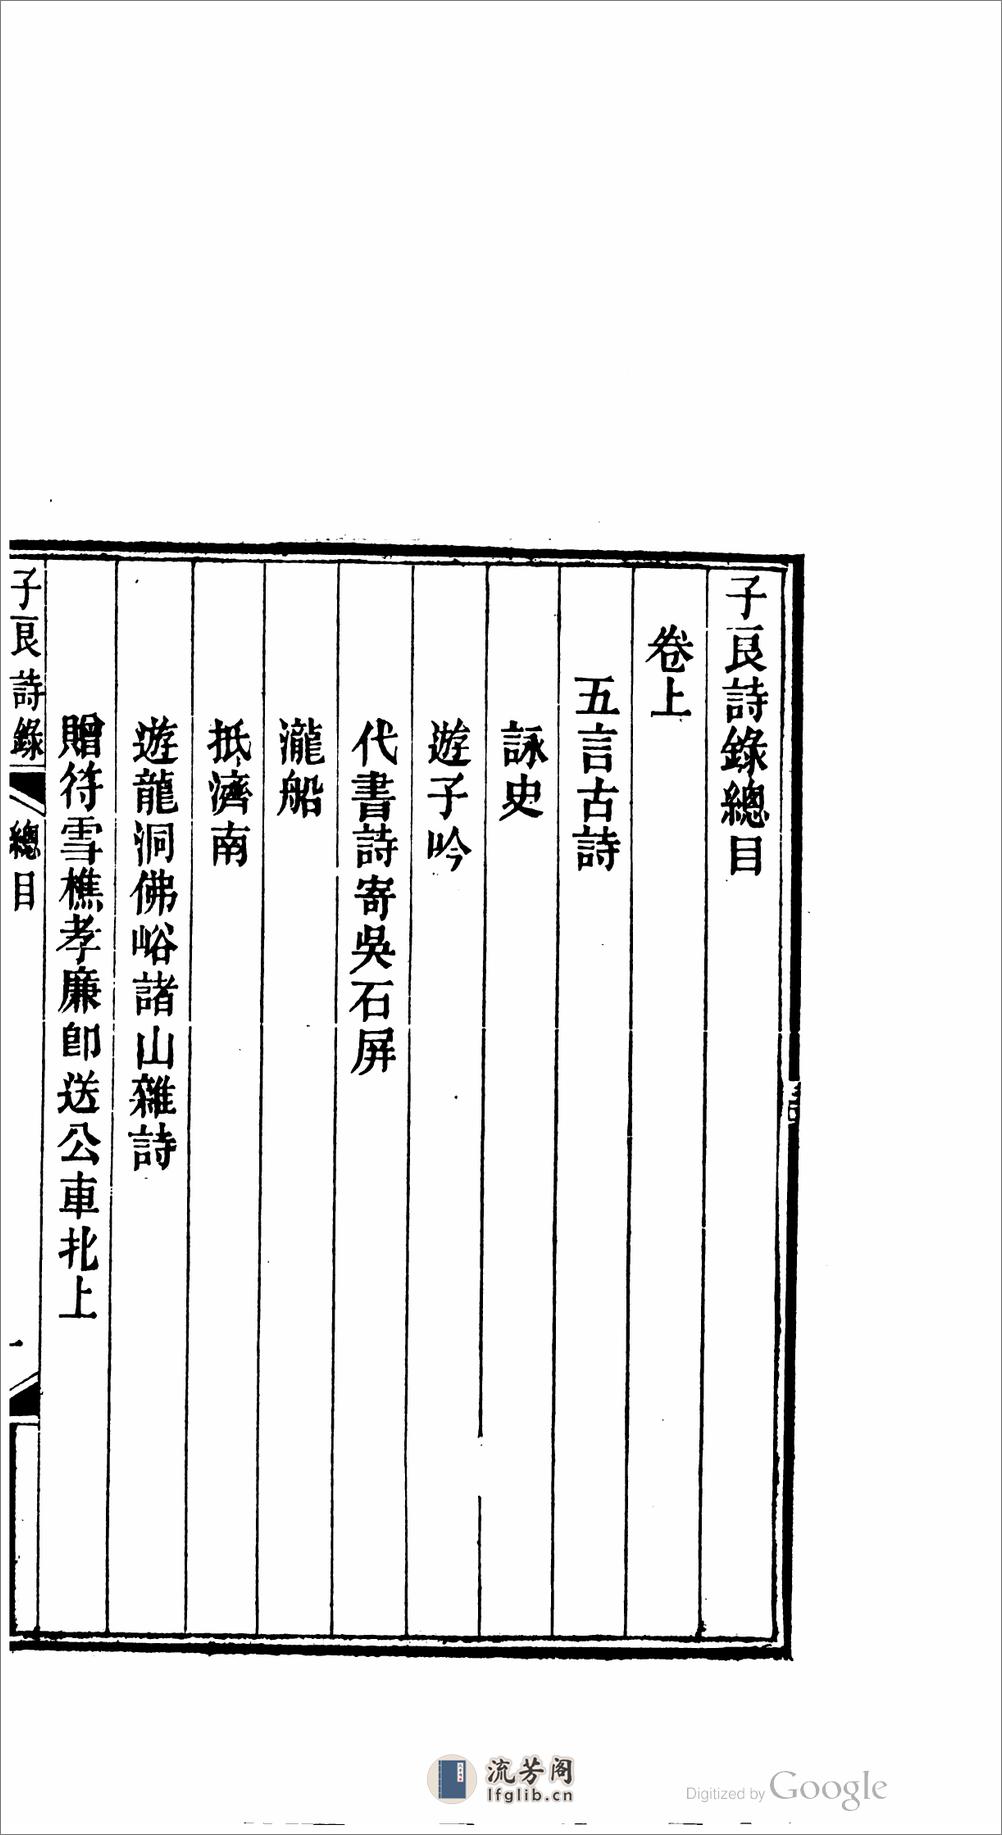 子良詩錄總目
卷上
五言古詩
詠史
遊子吟
代書詩寄吳石屏
瀧船
抵濟南
遊龍洞佛峪諸山雜詩
贈符雪樵孝廉卽送公車北上
子良詩錄
總目
一
流芳阁
lfglib.cn
Digitized by Google